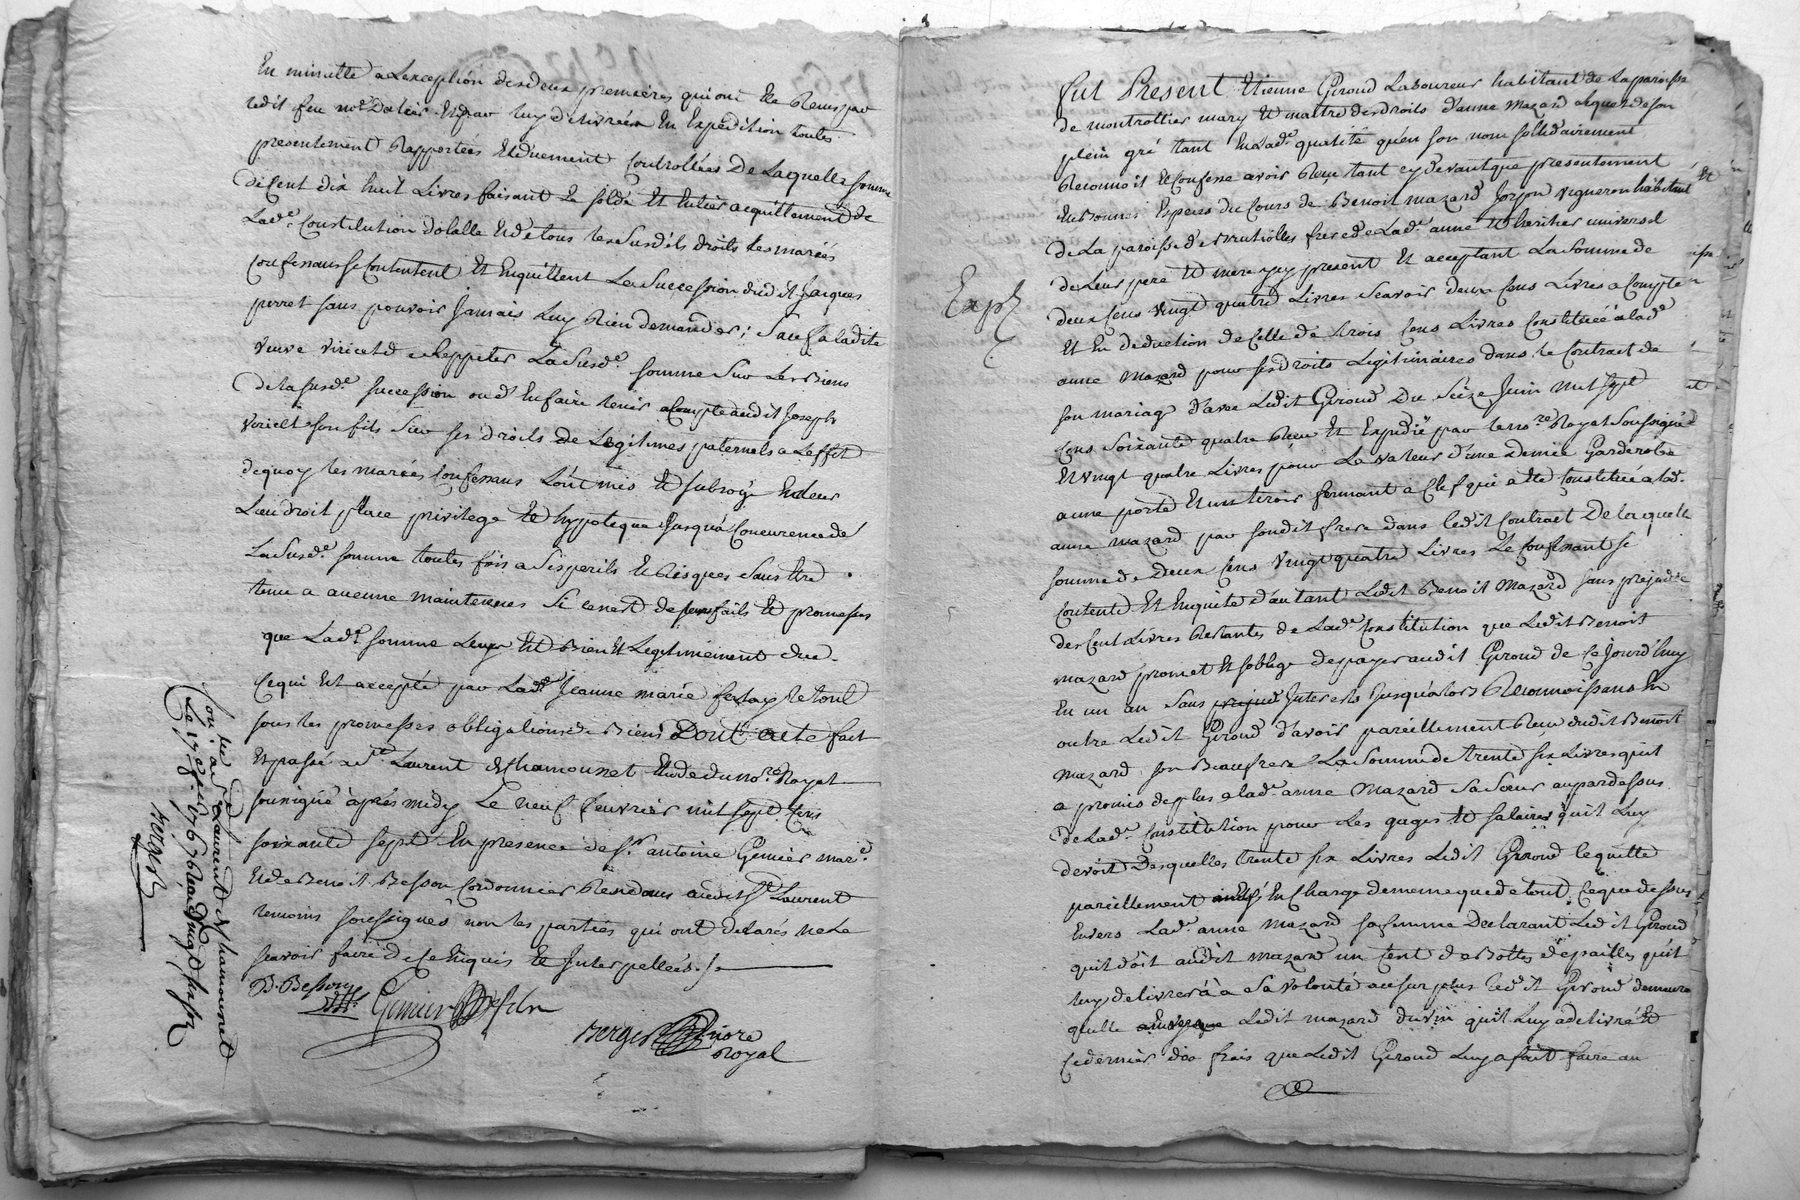 En minutte a Lexception desdeux premieres qui ont Ete Reçus par
ledit feu me Dalier Et par luy delivrées En Expedition toutes
presentement Rapportées Et duement Controllées De Laquelle somme
de Cent dix huit Livres faisant Le solde Et Entier acquittement de
Lade Constitution dotalle Et de tous les Susdits droits Les mariés
Confessans se Contentent Et Enquittent La Succession dudit Jacques
perret sans pouvoir Jamais Luy Rien demander; Sauf a ladite
veuve viricel de Reppeter La Susde somme Sur Les Biens
de la susde succession ou d'En faire tenir aCompte audit Joseph
viricel son fils Sur ses droits de Legitimes paternels a Leffet
de quoy les mariés Confessans L'ont mis Et subrogé En Leur
Lieu droit place privilege Et hypoteque Jusqu'a Concurrence de
La Susde somme toutes fois a Ses perils Et Risques Sans Etre
tenu a aucune maintenues Si ce n'est de leurs faits Et promesses
que Lade somme Leur Est Bien Et Legitimement due.
Ce qui Est accepté par Lade Jeanne marie Et Le tout
sous les promesses obligations de Biens Dont acte fait
Et passé a St Laurent de Chamousset Etude du nore Royal
soussigné après midy Le neuf feuvrier mil sept Cens
soixante sept En presence de Sr antoine Genier mard
Et de Benoit Besson Cordonnier Residans audit St Laurent
temoins soussignés non les parties qui ont declarés ne le
sçavoir faire de Ce Enquis Et Interpellés ./.
B. Besson
Genier
Berger nore
Royal
Controllé a St Laurent de Chamousset
Le 17e fev. 1767 Reçu
Berger
Fut Present Etienne Giroud Laboureur habitant de La paroisse
de montrottier mary Et maitre des droits d'anne Mazard lequel de son
plein gré tant En Lade qualité qu'en son nom sollidairement
Reconnoit Et Confesse avoir Reçu tant cy devant que presentement
En Bonnes Especes du Cours de Benoit mazard vigneron habitant
de La paroisse de Brullolles frere de Lade anne Et heritier universel
de Leur pere Et mere icy present Et acceptant La Somme de
Exp
deux Cens vingt quatre Livres Scavoir deux Cens Livres a Compte
Et En deduction de Celle de trois Cens Livres Constituée a lade
anne Mazard pour ses droits Legitimaires dans le Contract de
son mariage d'avec Ledit Giroud Du Seize Juin mil sept
Cens Soixante quatre Reçu Et Expedié par le nore Royal Soussigné
Et vingt quatre Livres pour La valeur d'une demie Garderobe
a une porte Et un tiroir fermant a Clef qui a Eté Constituée a lade
anne mazard par sondit frere dans Ledit Contract De laquelle
somme de Deux Cens Vingt quatre Livres Le Confessant se
Contente Et Enquitte d'autant Ledit Benoit Mazard sans prejudice
des Cent Livres Restantes de Lade Constitution que Ledit Benoit
Mazard promet Et s'oblige de payer audit Giroud de Ce Jourd'huy
En un an sans Interets Jusqu'alors Reconnoissans En
outre Ledit Giroud d'avoir pareillement Reçu dudit Benoit
Mazard son Beaufrere La Somme de trente six Livres qu'il
a promis de plus a lade anne Mazard sa Sœur au par dessus
de Lade Constitution pour Les gages Et salaires qu'il Luy
devoit Desquelles trente six Livres Ledit Giroud Le quitte
pareillement En Charge de meme que de tout Ce que dessus
Envers Lade anne Mazard sa femme Declarant Ledit Giroud
qu'il doit audit Mazard un Cent de Bottes de pailles qu'il
luy delivrera a Sa volonté au surplus Ledit Giroud demeure
quitte Ledit mazard du vin qu'il Luy a delivré Et
Ce dernier des frais que Ledit Giroud Luy a fait faire au